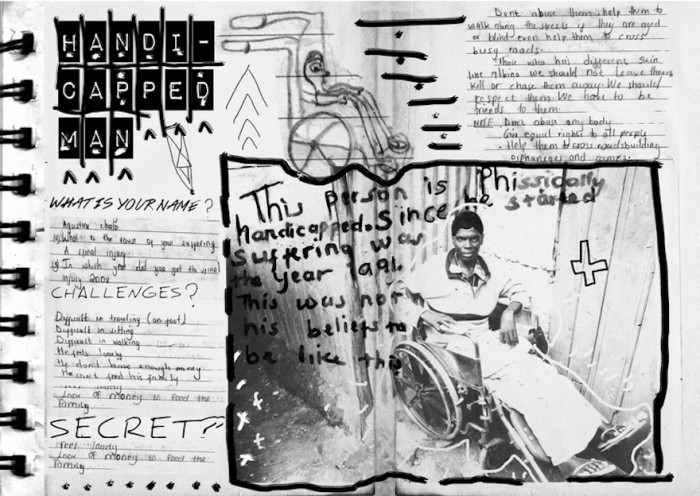 HANDI-
CAPPED
MAN
WHAT IS YOUR NAME?
What is the of your suffering
A spinal injury
In which year did you get the
injury 2002
CHALLENGES?
Difficult in traveling (on foot)
Difficult in sitting
Difficult in walking
He feels lonely
He don't have enough money
He can't feed his family
Lack of money to food the
family.
SECRET?
Feel lonely
Lack of money to food the
family.
Dont abuse them, help them to
walk along the streets if they are aged
or blind even help them to cross
busy roads.
Those who has different skin
like albino we should not leave them
kill or chase them away. We should
respect them. We have to be
friends to them.
Don't abuse any body
Give equal rights to all people
Help them to cross roads, building
orphanages and
This person is Phissically
handicapped. Since he started
suffering was
the year
This was not
his beliefs to
be like this